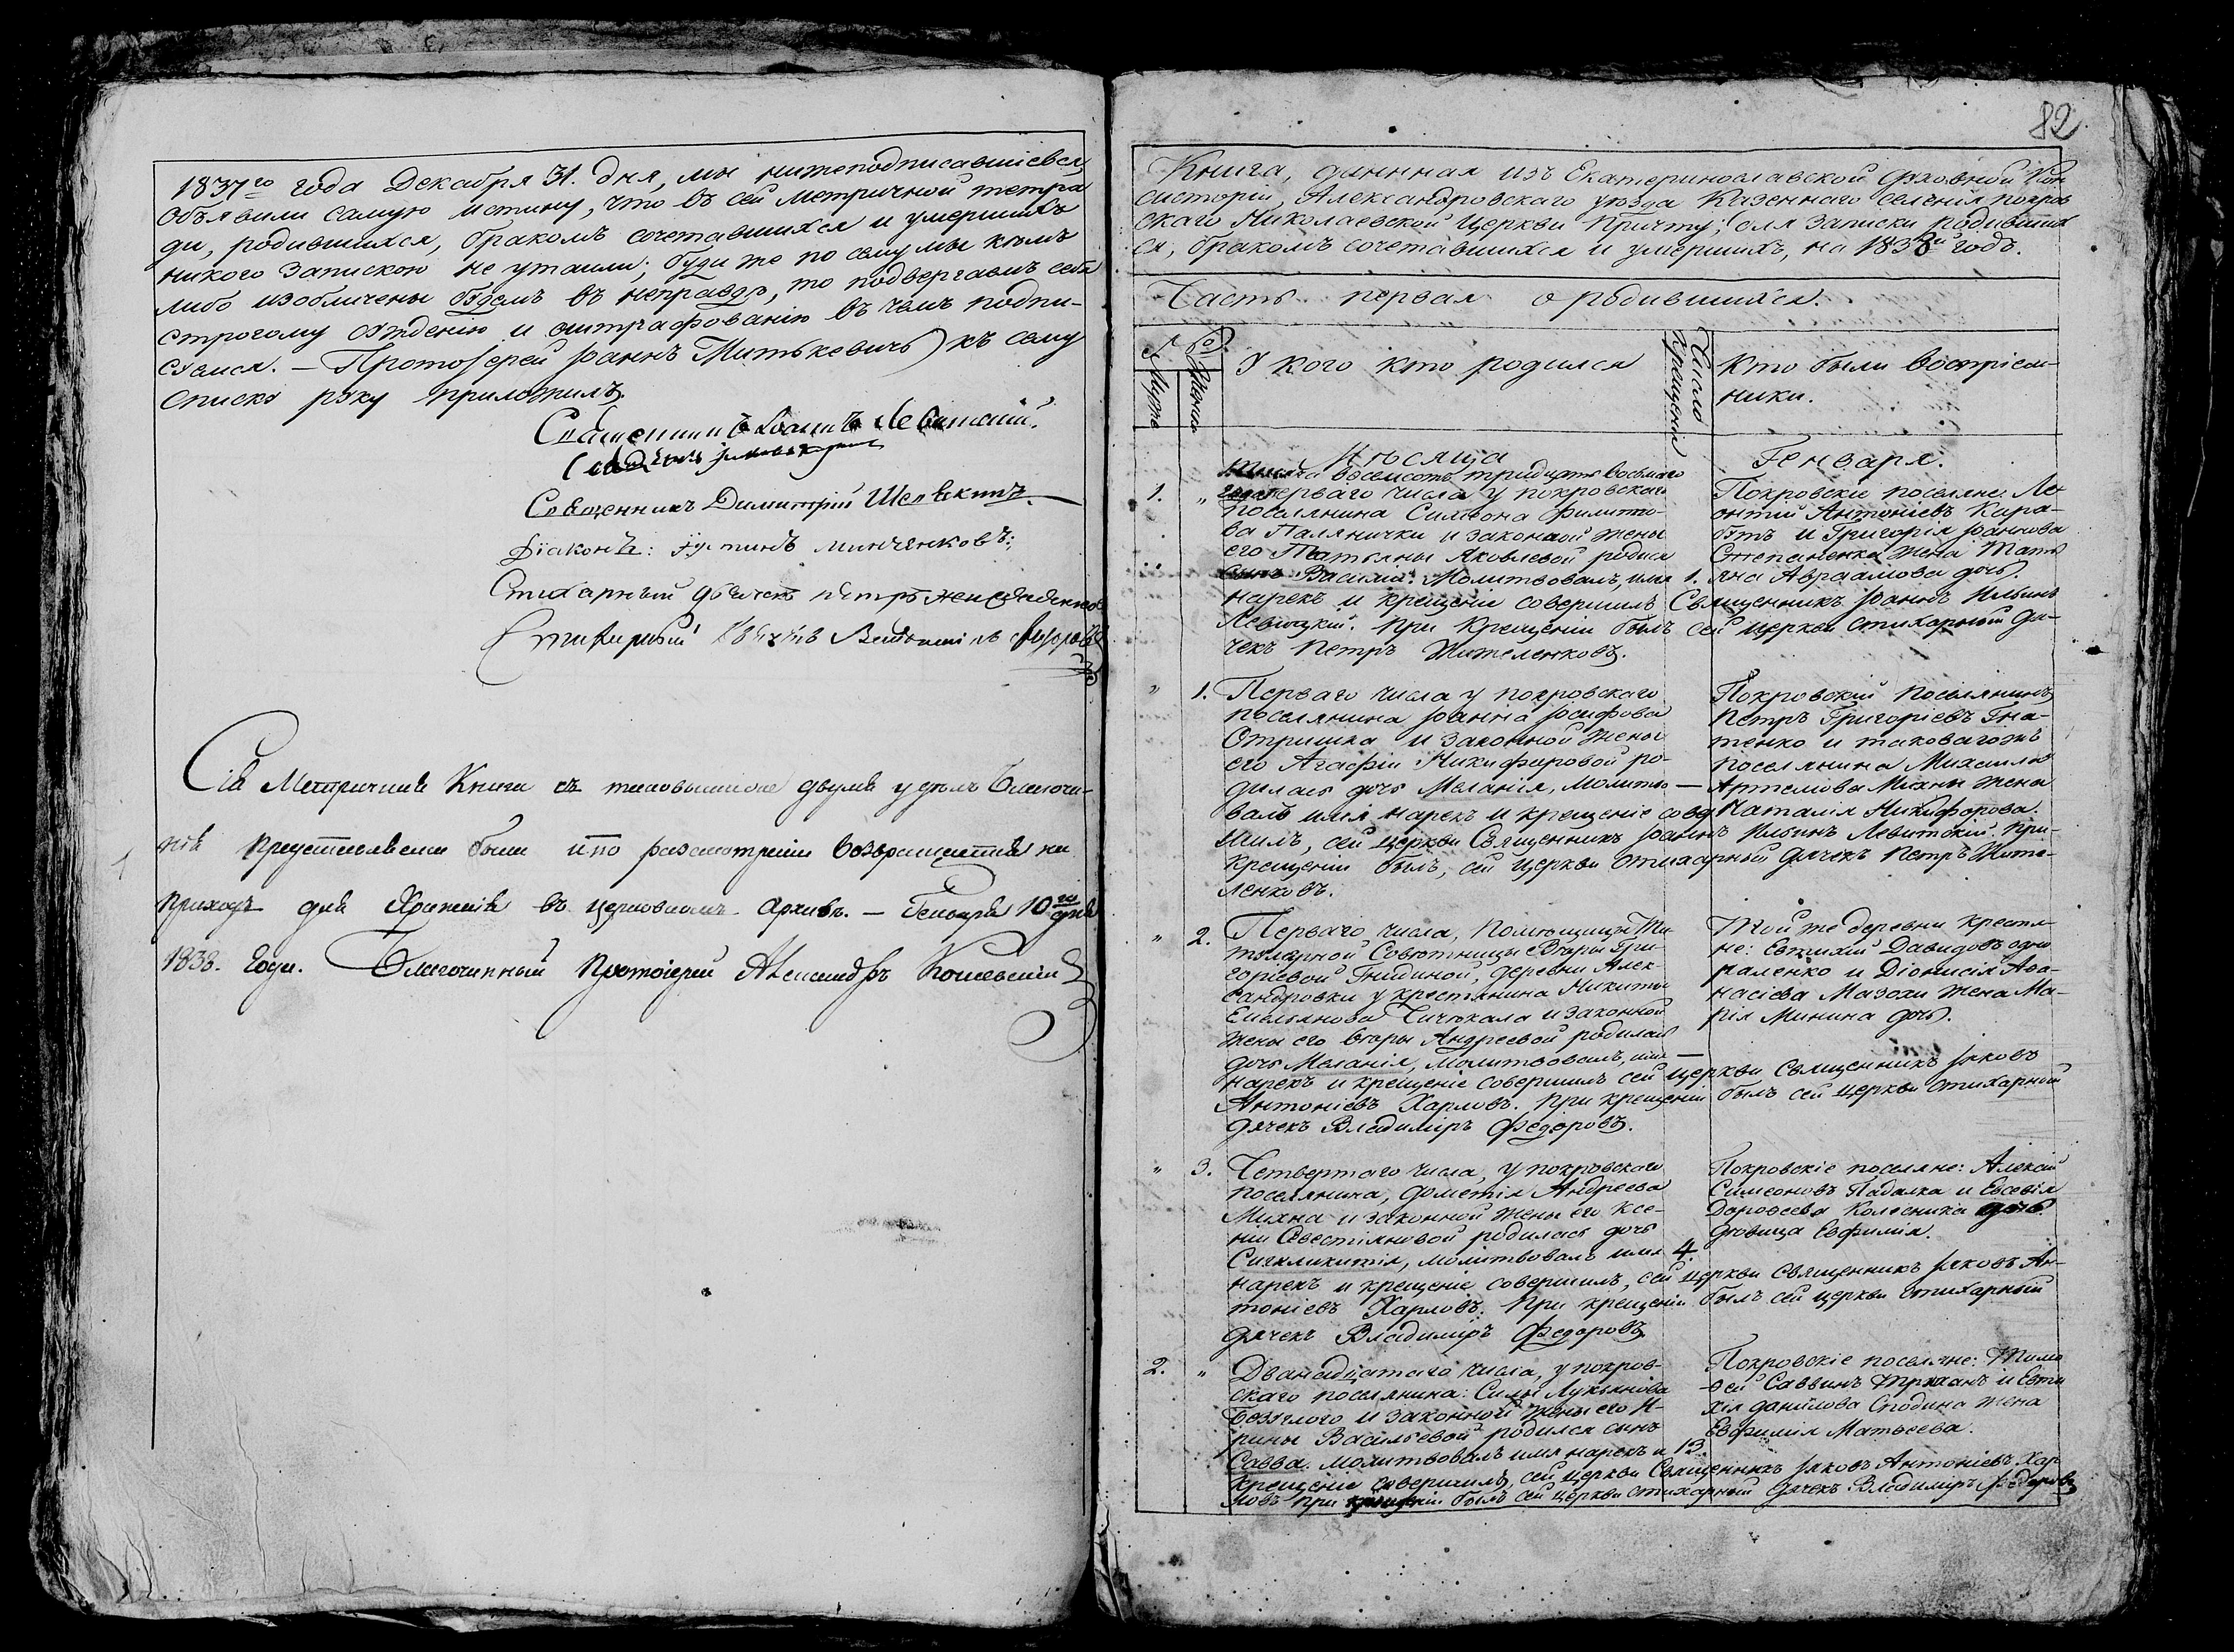 1837го года Декабря 31. дня, мы нижеподписавшіеся,
Объявили самую истину, что въ сей Метричной тетра
ди, родившихся, бракомъ сочетавшихся и умершихъ
никого запискою не утаили; буди же по сему мы кѣмъ
либо изобличены будемъ въ неправдѣ, то подвергаемъ себя
строгому сужденію и оштрафованію въ чемъ подпи-
суемся. — Протоіерей Іоаннъ Митькевичъ къ сему
списку руку приложилъ.
Священникъ Іоаннъ Левитскій.
Священникъ Димитрій
Діаконъ: Іустинъ Минченковъ:
Стихарный дьячекъ Петръ
Стихарный
Сія Метричная Книга съ таковыми двумя у дѣлъ Благочи-
нія представлена была и по разсмотреніи возвращается на
приходъ для Храненія въ церковномъ Архивѣ. — Генваря 10го дня
1838. Года. Благочинный Протоіерей Александръ
82.
Книга, данная изъ Екатеринославской Духовной Кон
систоріи, Александровскаго уѣзда Казеннаго селенія покров
скаго Николаевской Церкви Причту, для записки родивших
ся, бракомъ сочетавшихся и умершихъ, на 1838й годъ.
Часть первая о родившихся.
Мужс
Женск
У кого кто родился
Число крещенія
Кто были воспріем-
ники.
Мѣсяца
Генваря.
восемсотъ тридцать восьмаго
1. „ перваго числа у покровскаго
поселянина Симеона Филипо-
ва Палянички и законной жены
его Татьяны Яковлевой родился
сынъ Василій. Молитвовалъ, имя 1.
нарекъ и крещеніе совершилъ Священникъ Іоаннъ Ильинъ
Левицкій. При Крещеніи былъ сей церкви стихарный Дя-
чекъ Петръ Жителенковъ.
Покровскіе поселяне: Ле
онтій Антоніевъ Кара-
бутъ и Григорія Іоаннова
Степаненка жена Татья
яна Авраамова дочь.
„ 1. Перваго числа у покровскаго
поселянина Іоанна Іосифова
Отришка и законной жены
его Агафіи Никифоровой ро-
дилась дочь Меланія, молитво —
валъ имя нарекъ и крещеніе совер
шилъ, сей церкви Священникъ Іоаннъ Ильинъ Левитскій. при-
крещеніи былъ, сей церкви стихарный дячекъ Петръ Жите-
ленковъ.
Покровскій Поселянинъ
Петръ Григоріевъ Гна-
тенко и таковагожъ
поселянина Михаила
Артемова Михны жена
Наталія Никифорова.
„ 2. Перваго числа, Помѣщицы Ти
тулярной Совѣтницы Вѣры Гри-
горіевой Гнидиной, деревни Алек-
сандровки у крестянина Никиты
Емельянова Чичкала и законной
жены его Вѣры Андреевой родилась
дочь Меланія, молитвовалъ, имя —
нарекъ и крещеніе совершилъ сей церкви Священникъ Іаковъ
Антоніевъ Харловъ. При крещеніи былъ сей церкви стихарный
дячекъ Владиміръ Федоровъ.
Той же деревни крестя-
не: Евтихій Давидовъ
раленко и Діонисія Аѳа-
насіева Мазохи жена Ма-
рія Минина дочь.
„ 3. Четвертаго числа, у покровскаго
поселянина, Дометія Андреева
Михна и законной жены его Ксе-
ніи Севестіяновой родилась дочь
Сигклитикія, молитвовалъ имя 4.
нарекъ и крещеніе совершилъ, сей церкви Священникъ Іаковъ Ан-
тоніевъ Харловъ. При крещеніи былъ сей церкви стихарный
дячекъ Владиміръ Федоровъ
Покровскіе поселяне: Алексій
Симеоновъ Падалка и Евсевія
Дороѳеева Колесника дочь
дѣвица Евфимія.
2. „ Дванадцатаго числа, у покров-
скаго поселянина: Силы Лукьянова
Безуглого и законной жены его И-
рины Васильевой родился сынъ
Савва. молитвовалъ имя нарекъ и 13.
крещеніе совершилъ, сей церкви Священникъ Іаковъ Антоніевъ Хар
ловъ при крещеніи былъ сей церкви стихарный Дячекъ Владиміръ Федоровъ
Покровскіе поселяне: Тимо
ѳей Саввинъ и Евти
хія Данилова Сподина жена
Евфимія Матвеева.